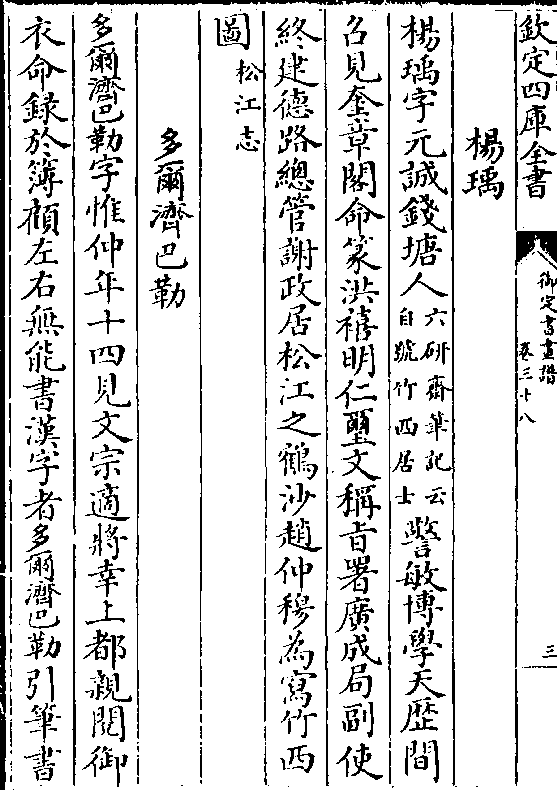 欽定四庫全書
御定書畫譜
卷三十八
三
楊瑀
楊瑀字元誠錢塘人六研齋筆記云自號竹西居士警敏博學天歷間
召見奎章閣命篆洪禧明仁璽文稱旨署廣成局副使
終建德路總管謝政居松江之鶴沙趙仲穆為寫竹西
圖松江志
多爾濟巴勒
多爾濟巴勒字惟仲年十四見文宗適將幸上都親閱御
衣命錄於簿顧左右無能書漢字者多爾濟巴勒引筆書